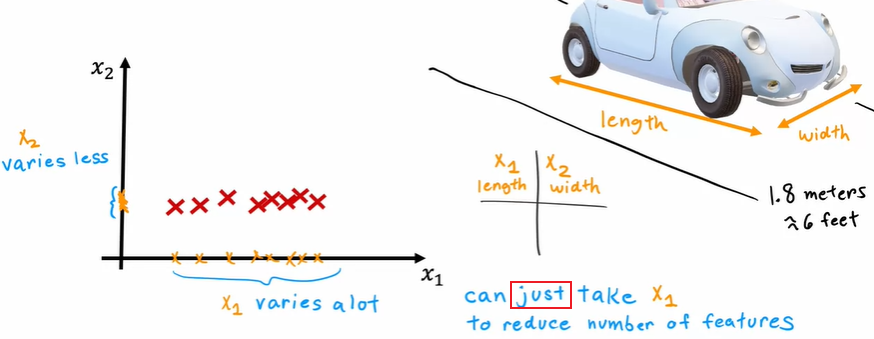 x₂
x₂
varies less
x₁
x₁ varies a lot
length
width
x₁ x₂
length width
1.8 meters
≈6 feet
can just take x₁
to reduce number of features